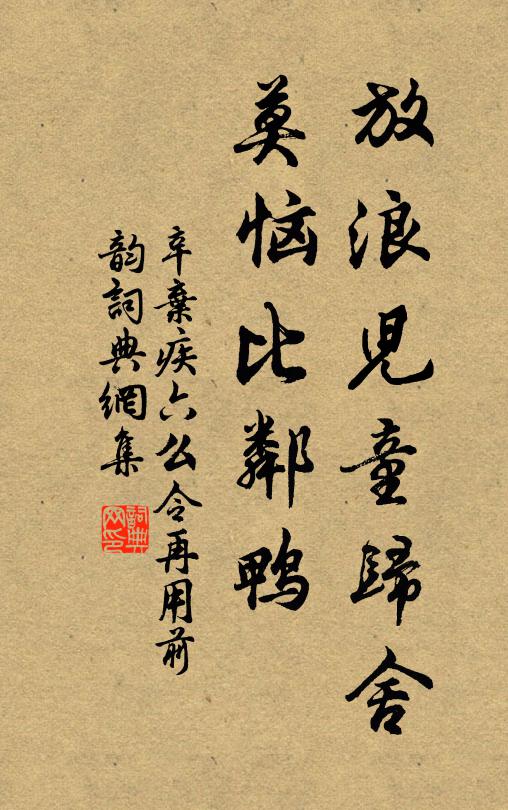 放浪兒童歸舍
莫惱比鄰鴨
辛棄疾六公令再用前
韵詞典網集
詞典網印